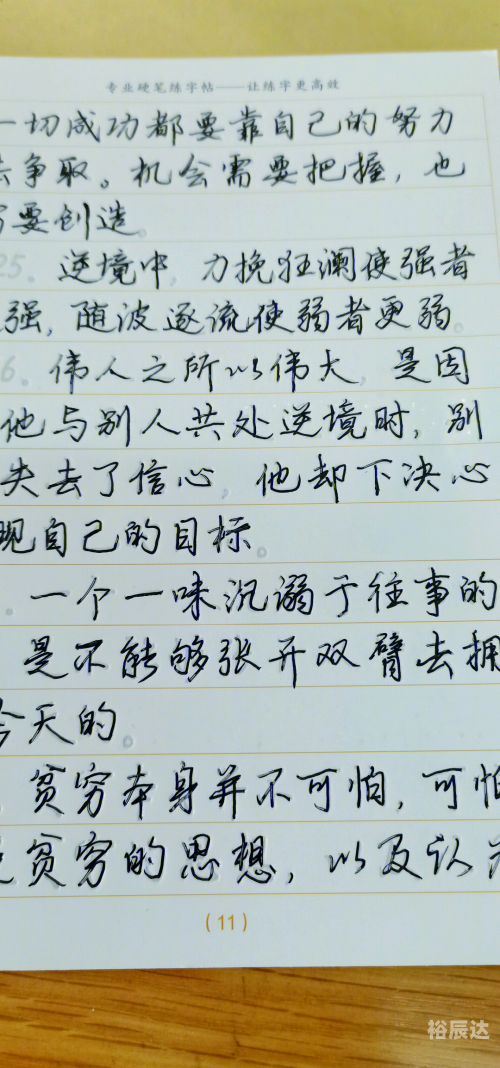 专业硬笔练字帖——让练字更高效
一切成功都要靠自己的努力
去争取。机会需要把握，也
需要创造。
25. 逆境中，力挽狂澜使强者
强，随波逐流使弱者更弱。
6. 伟人之所以伟大，是因
他与别人共处逆境时，别
失去了信心，他却下决心
现自己的目标。
. 一个一味沉溺于往事的
是不能够张开双臂去拥
今天的。
贫穷本身并不可怕，可怕
贫穷的思想，以及认为
（11）
裕辰达